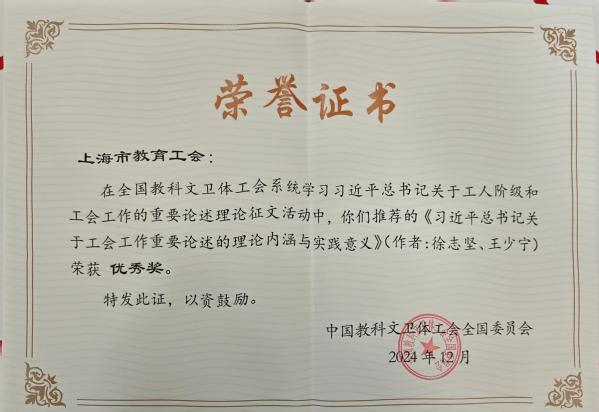 荣誉证书
上海市教育工会：
在全国教科文卫体工会系统学习习近平总书记关于工人阶级和
工会工作的重要论述理论征文活动中，你们推荐的《习近平总书记关
于工会工作重要论述的理论内涵与实践意义》（作者：徐志坚、王少宁）
荣获 优秀奖。
特发此证，以资鼓励。
中国教科文卫体工会全国委员会
2024年12月